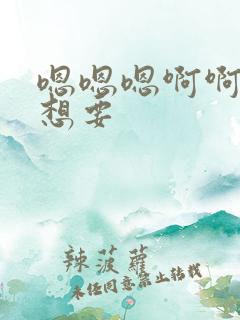 嗯嗯嗯啊啊
想要
辣菠蘿
未经同意禁止转载